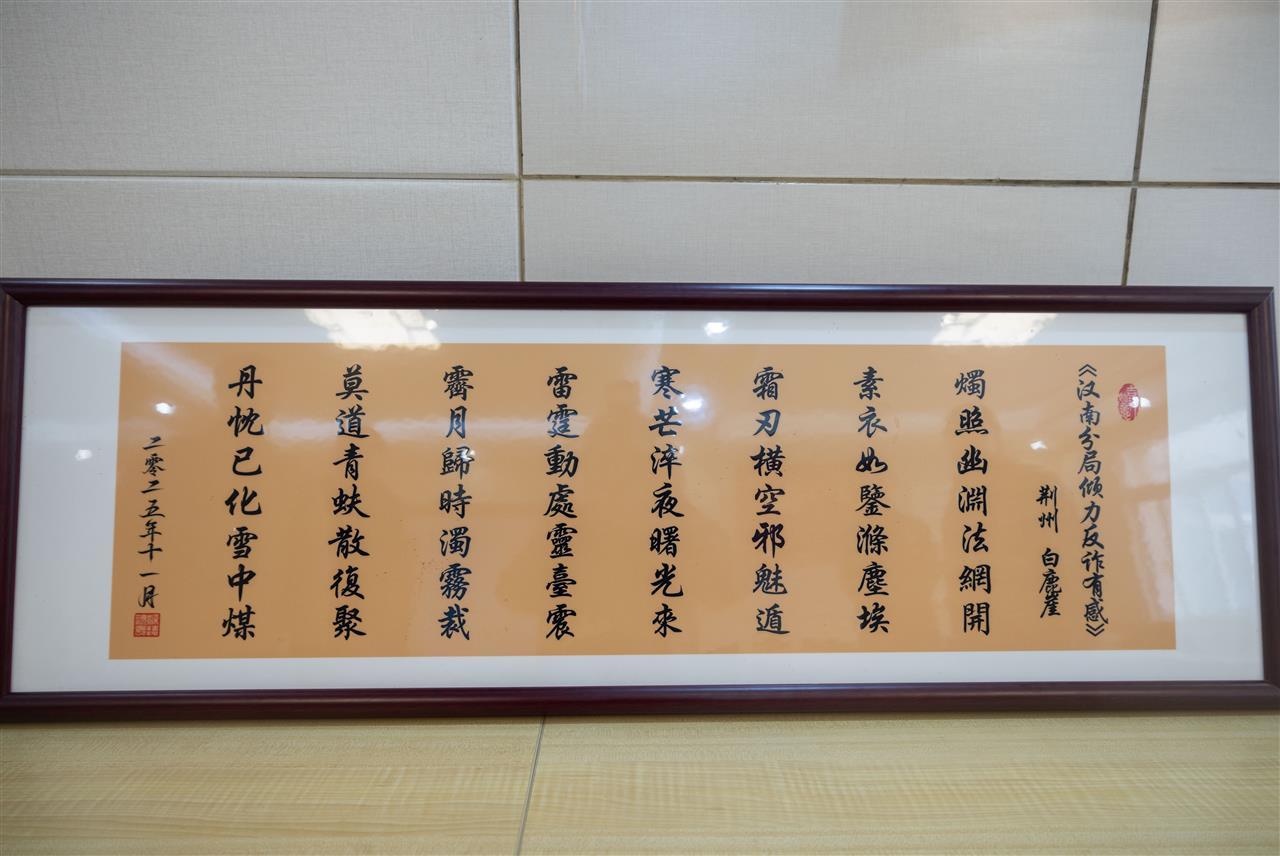 《汉南分局倾力反诈有感》
荆州 白鹿崖
燭照幽淵法網開
素衣如鑒滌塵埃
霜刃橫空邪魅遁
寒芒淬夜曙光來
雷霆動處靈臺震
霽月歸時濁霧裁
莫道青蚨散復聚
丹忱已化雪中煤
二零二五年十一月